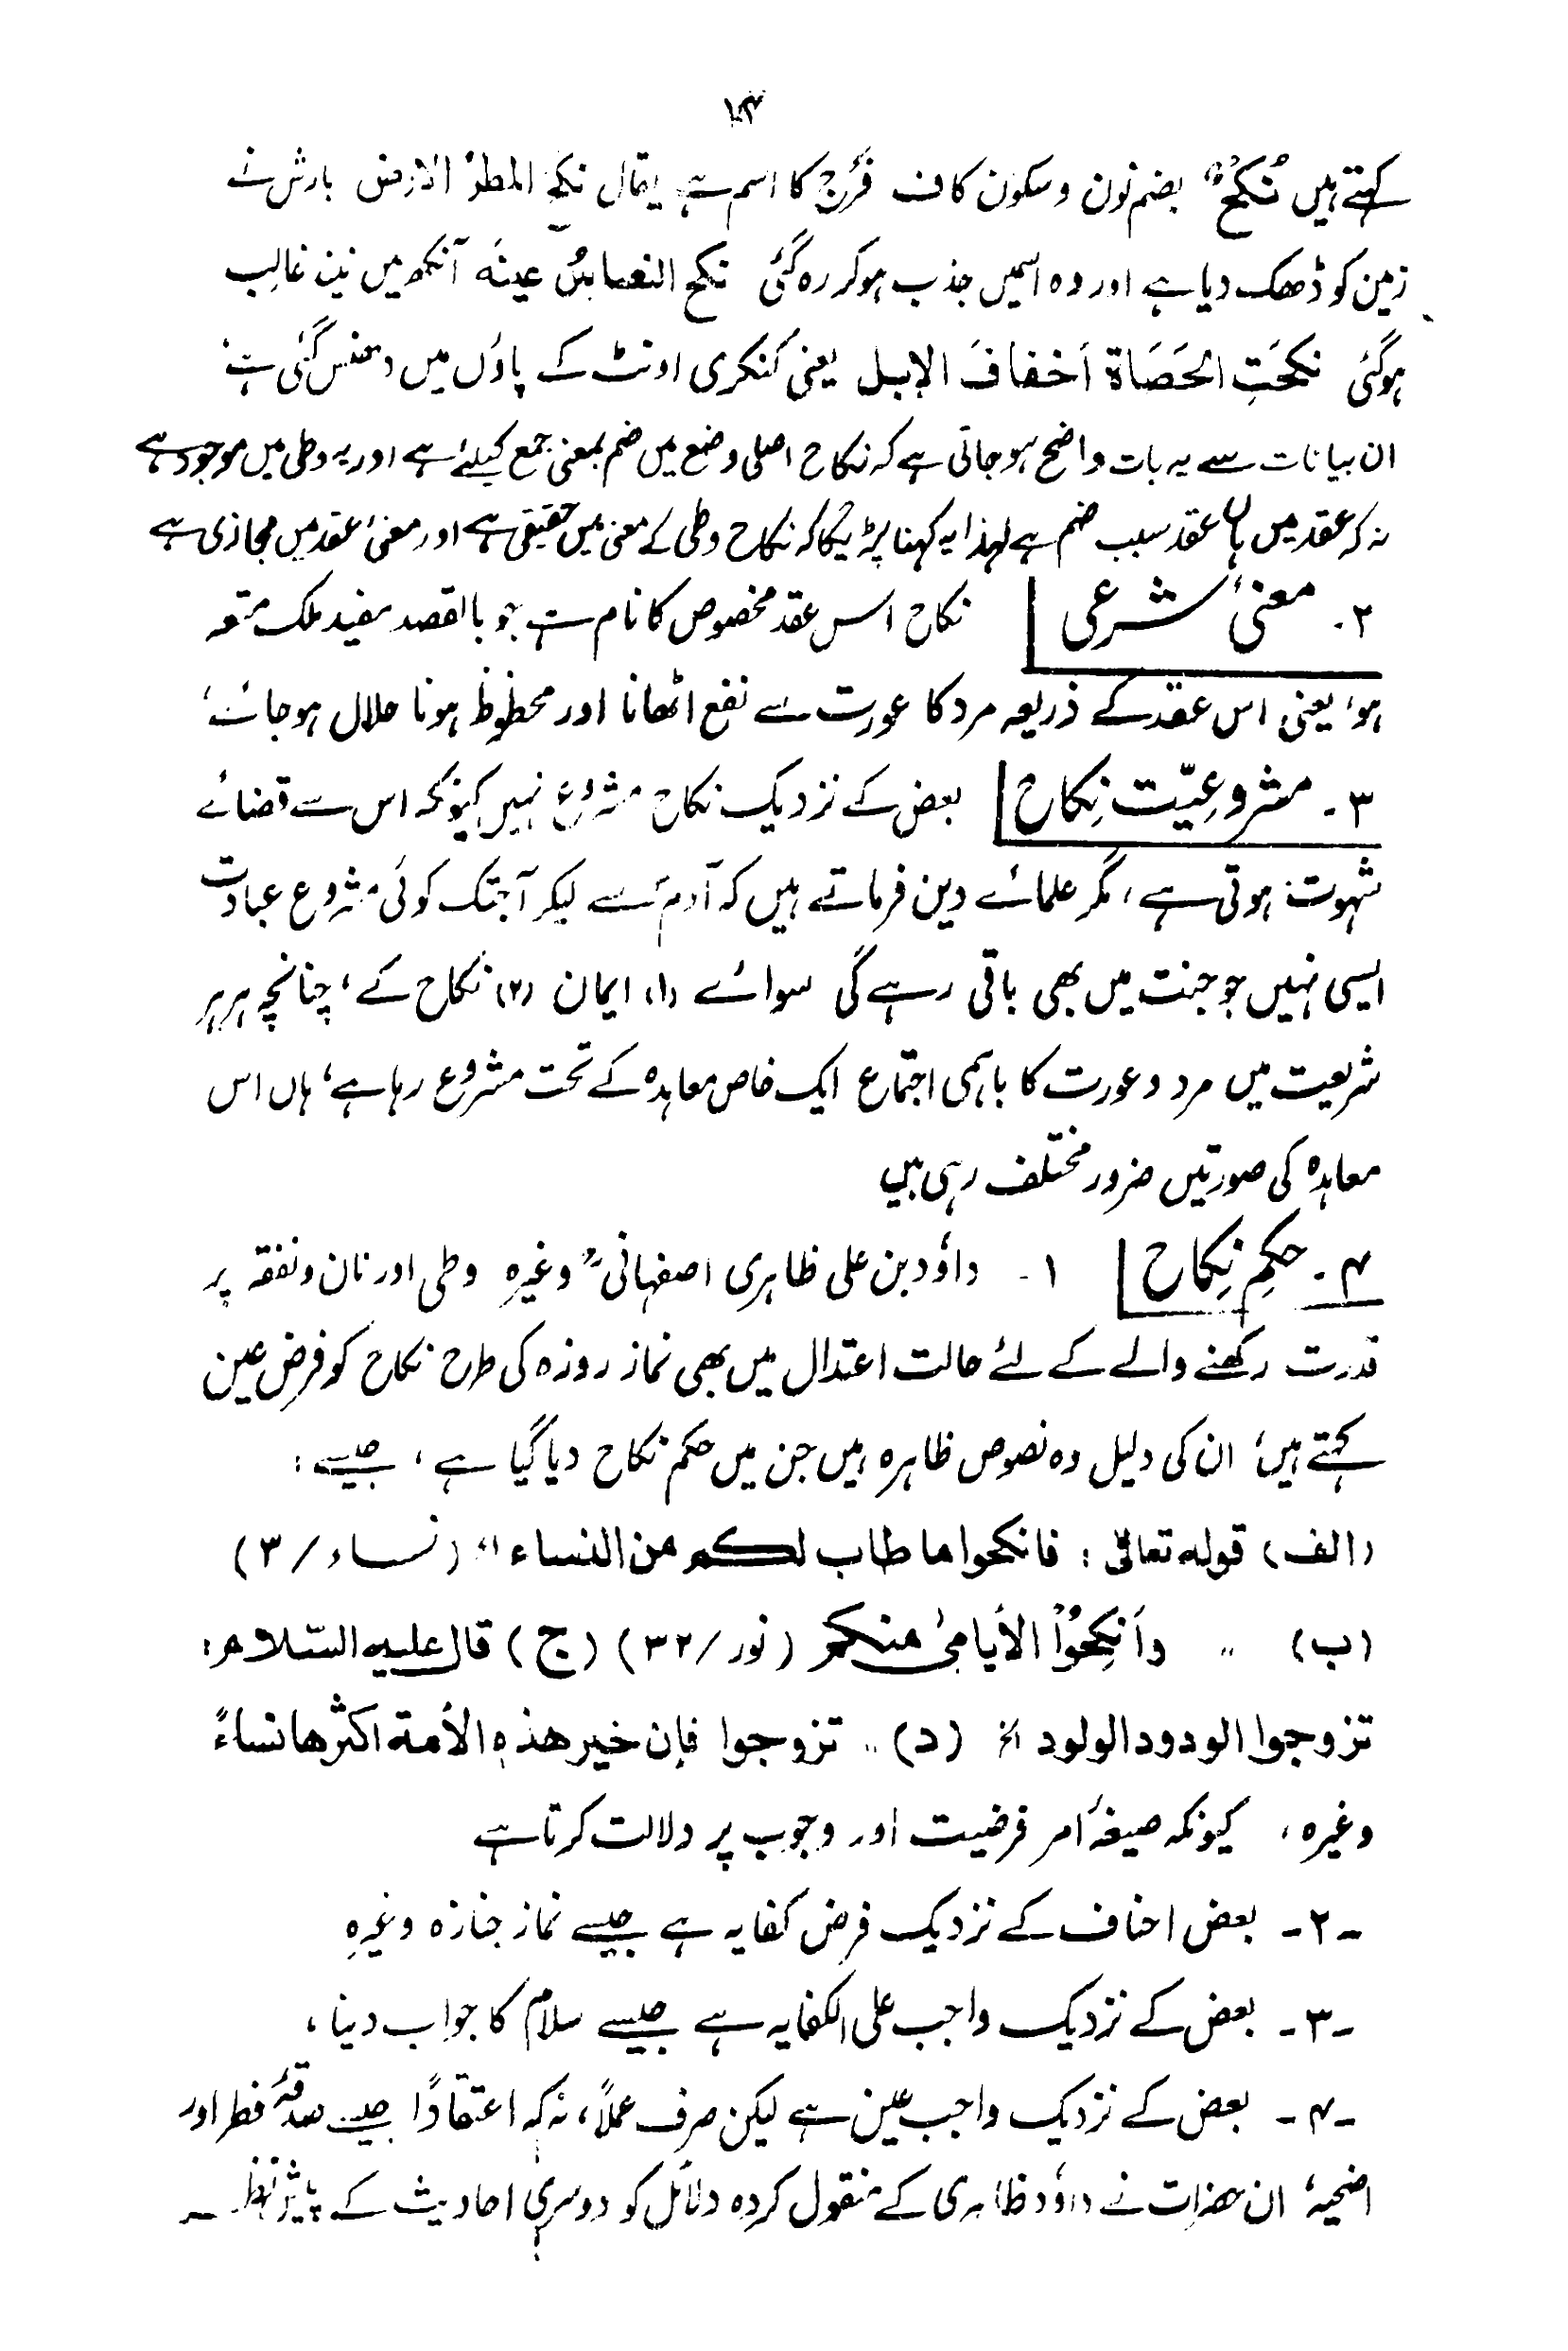 ۱۴
کہتے ہیں نُکحٌ بضم نون وسکون کاف فَرج کا اسم ہے یقال نکح المطرُ الارض بارش نے
زمین کو ڈھک دیا ہے اور وہ اسمیں جذب ہوکر رہ گئی نکح النعاسُ عینَہ آنکھ میں نیند غالب
ہوگئی نکحَتِ الحَصَاۃ اَخفافَ الابل یعنی کنکری اونٹ کے پاؤں میں دھنس گئی ہے
ان بیانات سے یہ بات واضح ہوجاتی ہے کہ نکاح اصلی وضع میں ضم بمعنی جمع کیلئے ہے اور یہ وطی میں موجود ہے
نہ کہ عقد میں ہاں عقد سبب ضم ہے لہذا یہ کہنا پڑیگا کہ نکاح وطی کے معنی میں حقیقی ہے اور معنیٔ عقد میں مجازی ہے
۲۔ معنیٔ شرعی نکاح اس عقد مخصوص کا نام ہے جو بالقصد مفید ملک متعہ
ہو، یعنی اس عقد کے ذریعہ مرد کا عورت سے نفع اٹھانا اور محظوظ ہونا حلال ہوجائے،
۳۔ مشروعیّت نِکاح بعض کے نزدیک نکاح مشروع نہیں کیونکہ اس سے قضائے
شہوت ہوتی ہے، مگر علمائے دین فرماتے ہیں کہ آدمؑ سے لیکر آجتک کوئی مشروع عبادت
ایسی نہیں جو جنت میں بھی باقی رہے گی سوائے (۱) ایمان (۲) نکاح کے، چنانچہ ہر ہر
شریعت میں مرد و عورت کا باہمی اجتماع ایک خاص معاہدہ کے تحت مشروع رہا ہے، ہاں اس
معاہدہ کی صورتیں ضرور مختلف رہی ہیں
۴۔ حکمِ نِکاح ۱۔ داؤد بن علی ظاہری اصفہانیؒ وغیرہ وطی اور نان ونفقہ پر
قدرت رکھنے والے کے لئے حالت اعتدال میں بھی نماز روزہ کی طرح نکاح کو فرض عین
کہتے ہیں، ان کی دلیل وہ نصوص ظاہرہ ہیں جن میں حکم نکاح دیا گیا ہے، جیسے :
(الف) قولہ تعالیٰ : فانکحوا ما طاب لکم من النساء " (نساء / ۳)
(ب) " وأنکِحُوْا الأیامیٰ منکم (نور / ۳۲) (ج) قال علیہ السّلام :
تزوجوا الودود الولود الخ (د) " تزوجوا فإن خیر ھذہ الأمۃ اکثرھا نساءً
وغیرہ، کیونکہ صیغۂ امر فرضیت اور وجوب پر دلالت کرتا ہے
-۲- بعض احناف کے نزدیک فرض کفایہ ہے جیسے نماز جنازہ وغیرہ
-۳- بعض کے نزدیک واجب علی الکفایہ ہے جیسے سلام کا جواب دینا،
-۴- بعض کے نزدیک واجب عین ہے لیکن صرف عملاً، نہ کہ اعتقاداً جیسے صدقۂ فطر اور
اضحیہ، ان حضرات نے داؤد ظاہری کے منقول کردہ دلائل کو دوسری احادیث کے پیش نظر